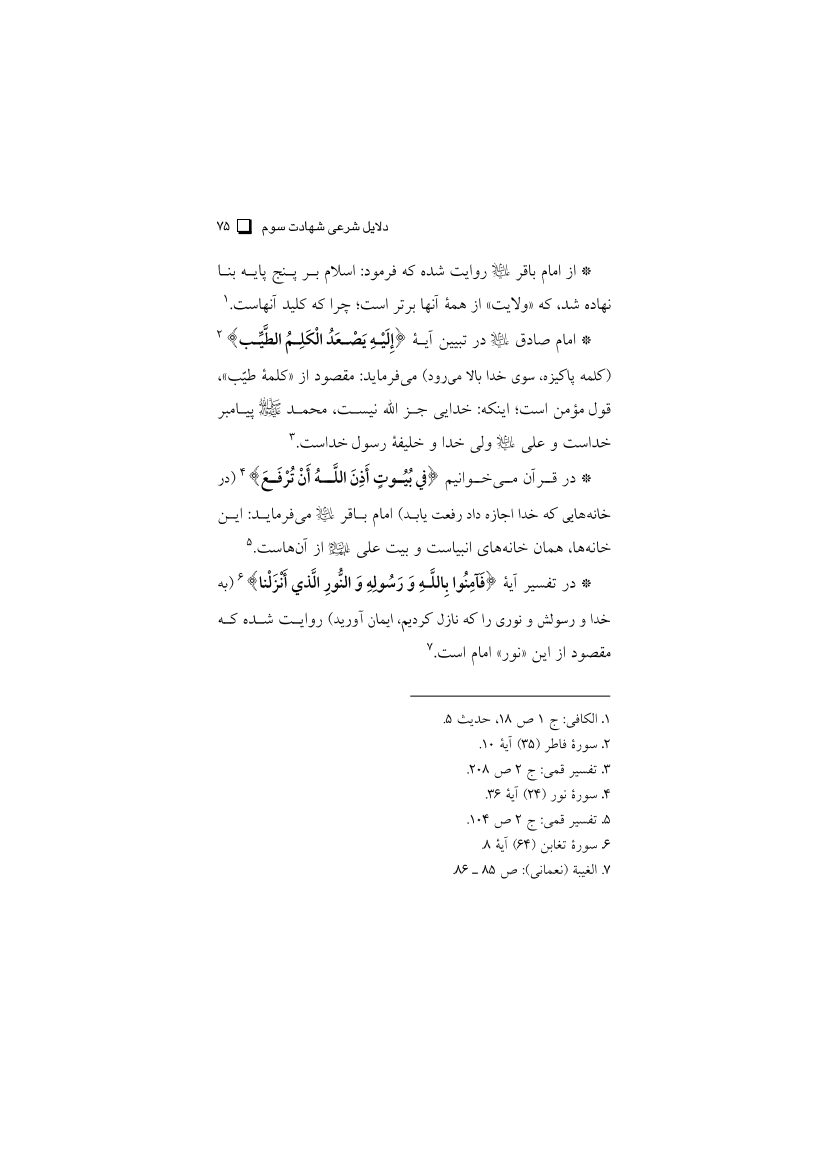 دلایل شرعی شهادت سوم ❑ ۷۵
* از امام باقر ﷷ روایت شده که فرمود: اسلام بر پنج پایه بنا
نهاده شد، که «ولایت» از همهٔ آنها برتر است؛ چرا که کلید آنهاست.۱
* امام صادق ﷷ در تبیین آیهٔ ﴿إِلَيْهِ يَصْعَدُ الْكَلِمُ الطَّيِّب﴾ ۲
(کلمه پاکیزه، سوی خدا بالا می‌رود) می‌فرماید: مقصود از «کلمهٔ طیّب»،
قول مؤمن است؛ اینکه: خدایی جز الله نیست، محمد ﷺ پیامبر
خداست و علی ﷷ ولی خدا و خلیفهٔ رسول خداست.۳
* در قرآن می‌خوانیم ﴿في بُيُوتٍ أَذِنَ اللَّهُ أَنْ تُرْفَعَ﴾ ۴ (در
خانه‌هایی که خدا اجازه داد رفعت یابد) امام باقر ﷷ می‌فرماید: این
خانه‌ها، همان خانه‌های انبیاست و بیت علی ﷷ از آن‌هاست.۵
* در تفسیر آیهٔ ﴿فَآمِنُوا بِاللَّهِ وَ رَسُولِهِ وَ النُّورِ الَّذي أَنْزَلْنا﴾ ۶ (به
خدا و رسولش و نوری را که نازل کردیم، ایمان آورید) روایت شده که
مقصود از این «نور» امام است.۷
۱. الکافی: ج ۱ ص ۱۸، حدیث ۵.
۲. سورهٔ فاطر (۳۵) آیهٔ ۱۰.
۳. تفسیر قمی: ج ۲ ص ۲۰۸.
۴. سورهٔ نور (۲۴) آیهٔ ۳۶.
۵. تفسیر قمی: ج ۲ ص ۱۰۴.
۶. سورهٔ تغابن (۶۴) آیهٔ ۸.
۷. الغیبة (نعمانی): ص ۸۵ ـ ۸۶.